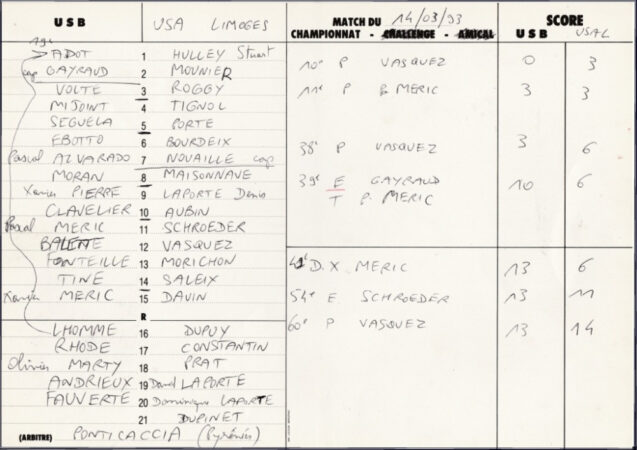 USB USA LIMOGES MATCH DU 14/03/93 SCORE
CHAMPIONNAT - CHALLENGE - AMICAL USB USAL
19e
ADOT 1 HULLEY Stuart
cap GAYRAUD 2 MOUNIER
VOLTE 3 ROGGY
MIJOINT 4 TIGNOL
SEGUELA 5 PORTE
EBOTTO 6 BOURDEIX
Pascal AZVARADO 7 NOUAILLE cap
MORAN 8 MAISONNAVE
Xavier PIERRE 9 LAPORTE Denis
CLAVELIER 10 AUBIN
Pascal MERIC 11 SCHROEDER
BALETTE 12 VASQUEZ
FONTEILLE 13 MORICHON
TINE 14 SALEIX
Xavier MERIC 15 DAVIN
R
LHOMME 16 DUPUY
RHODE 17 CONSTANTIN
Olivier MARTY 18 PRAT
ANDRIEUX 19 David LAPORTE
FAUVERTE 20 Dominique LAPORTE
21 DUPINET
(ARBITRE) PONTICACCIA (Pyrénées)
10e P VASQUEZ 0 3
11e P P. MERIC 3 3
38e P VASQUEZ 3 6
39e E GAYRAUD 10 6
T P. MERIC
49e D. X MERIC 13 6
54e E. SCHROEDER 13 11
60e P VASQUEZ 13 14